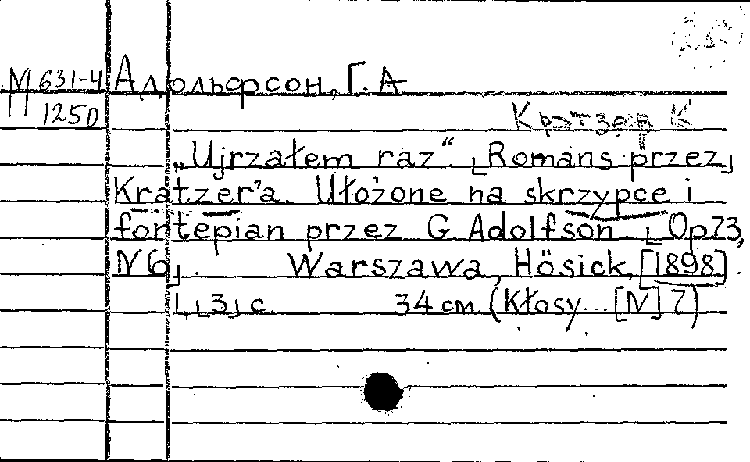 М 631-4 Адольфсон, Г. А
П 1250
Кратзер К
„Ujrzałem raz“. [Romans przez]
Kratzer'a. Ułożone na skrzypce i
fortepian przez G Adolfson [Op73,
N6]. Warszawa, Hösick, [1898].
[3] c. 34 cm (Kłosy...[N] 7)